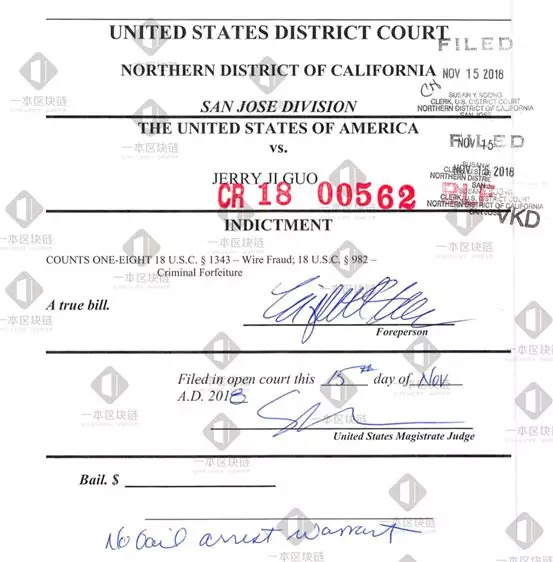 UNITED STATES DISTRICT COURT
FILED
NORTHERN DISTRICT OF CALIFORNIA
NOV 15 2018
SUSAN Y. SOONG
CLERK, U.S. DISTRICT COURT
NORTHERN DISTRICT OF CALIFORNIA
SAN JOSE
SAN JOSE DIVISION
THE UNITED STATES OF AMERICA
vs.
FILED
NOV 15 2018
JERRY JI GUO
CLERK, U.S. DISTRICT COURT
NORTHERN DISTRICT OF CALIFORNIA
SAN JOSE
CR 18 00562
VKD
INDICTMENT
COUNTS ONE-EIGHT 18 U.S.C. § 1343 – Wire Fraud; 18 U.S.C. § 982 –
Criminal Forfeiture
A true bill.
Foreperson
Filed in open court this 15th day of Nov
A.D. 2018
United States Magistrate Judge
Bail. $
No bail arrest warrant
一本区块链